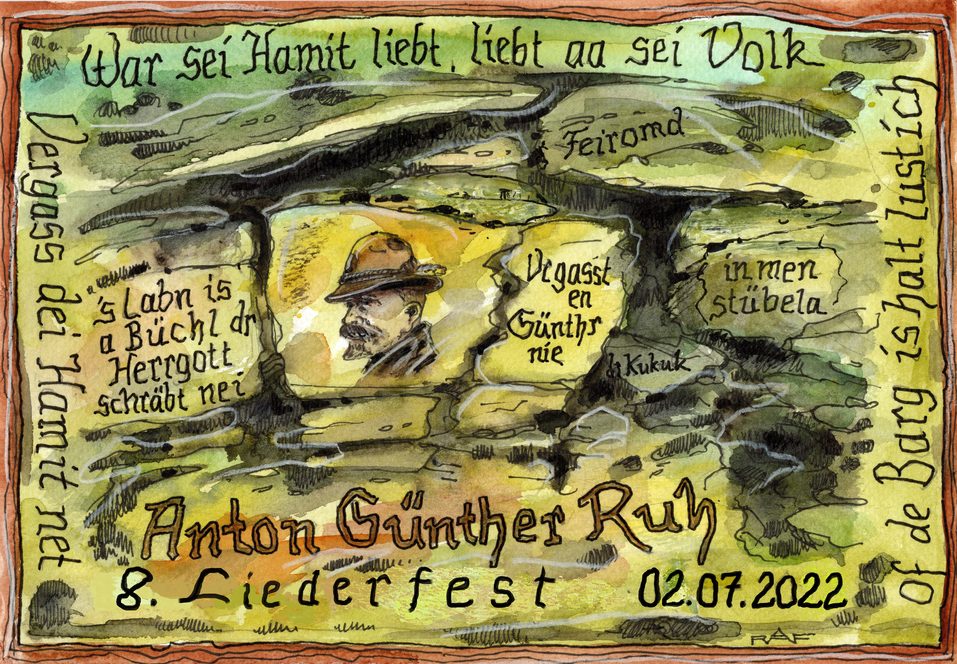 War sei Hamit liebt, liebt aa sei Volk
Vergass dei Hamit net
of de Barg is halt lustich
Feiromd
's Labn is
a Büchl dr
Herrgott
schräbt nei
Vrgasst
en
Günthr
nie
in men
stübela
dr Kukuk
Anton Günther Ruh
8. Liederfest 02.07.2022
RAF